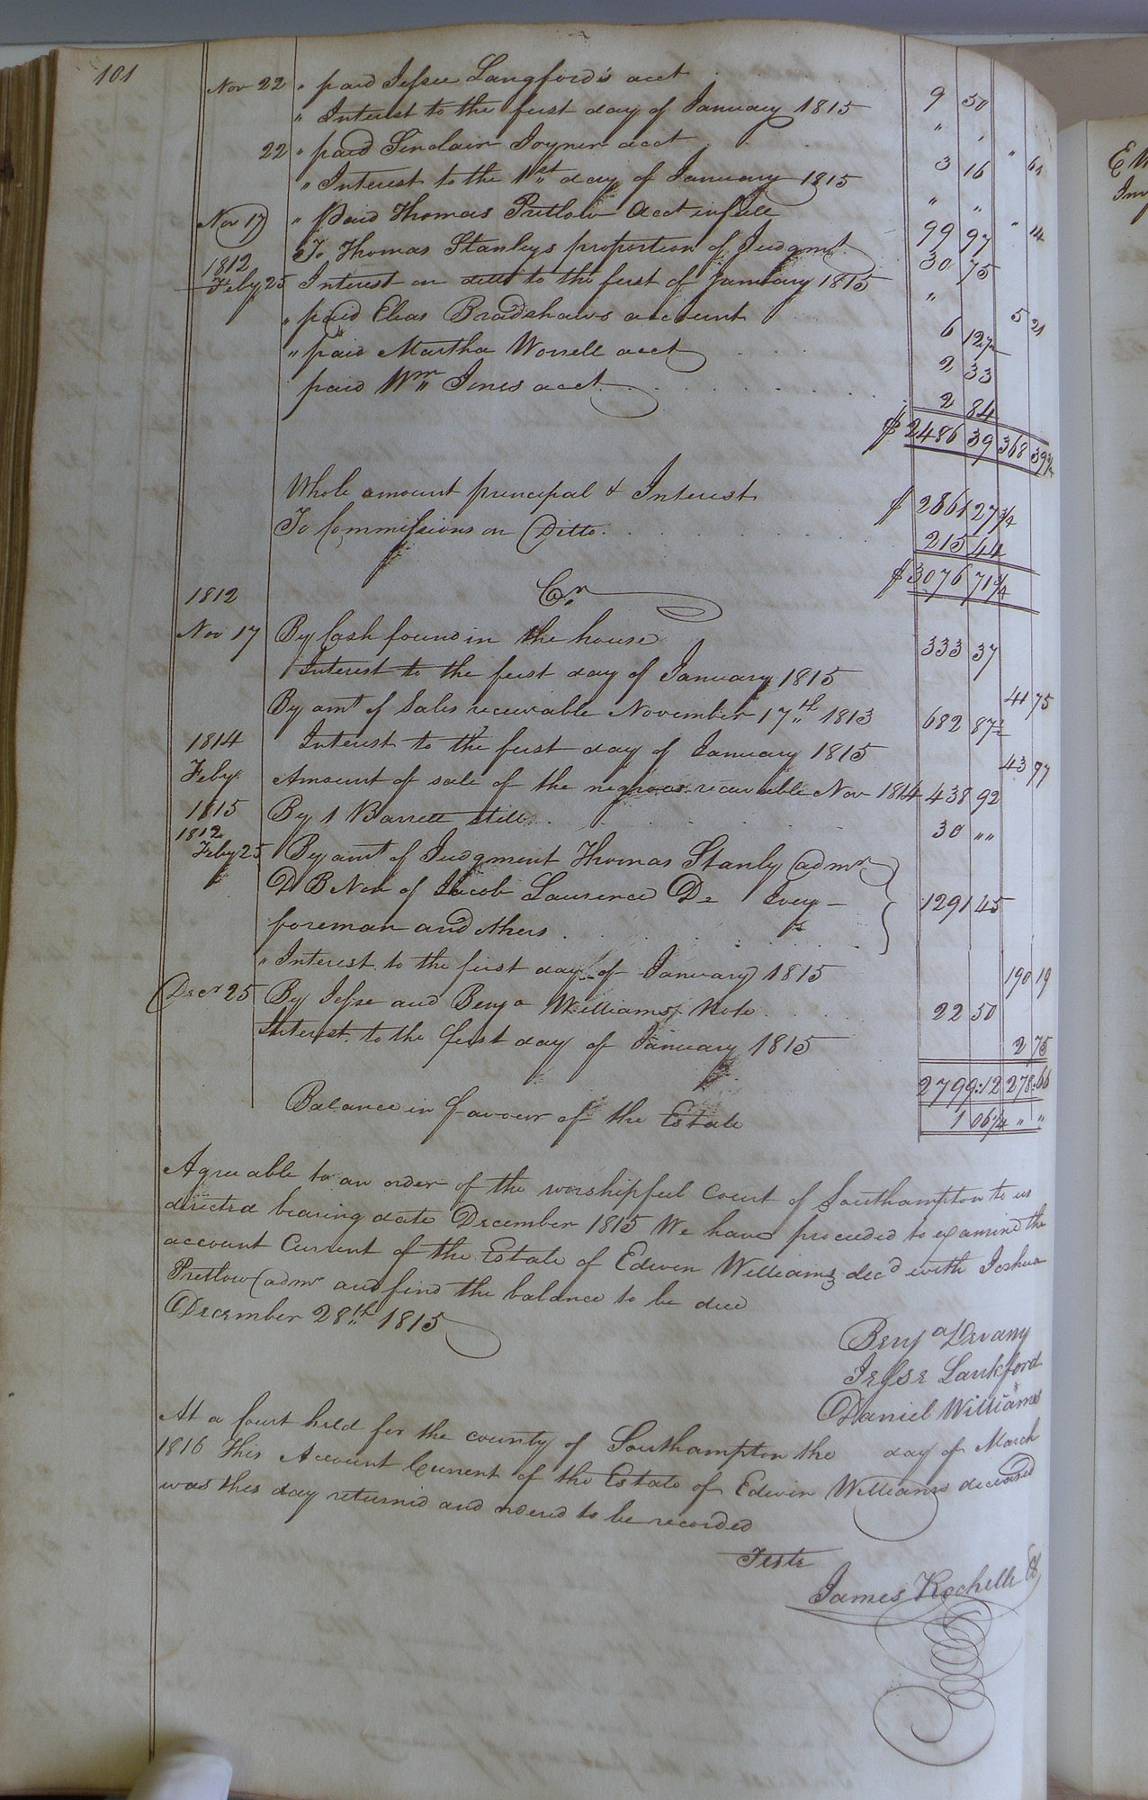 101
Nov 22 " paid Jesse Langford's acct . . . 9 50
" Interest to the first day of January 1815 " " " 61
22 " paid Sinclair Joyner acct . . 3 16
" Interest to the 1st day of January 1815 " " " 14
Nov 17 " Paid Thomas Pretlow Acct in full 99 97
To Thomas Stanleys proportion of Judgmt 30 75
1812
Feby 25 Interest on ditto to the first of January 1815 " 5 21
" paid Elias Bradshaws account 6 12½
" paid Martha Worrell acct . . . 2 33
paid Wm Jones acct . . . . 2 84
$ 2486 39 368 39¾
Whole amount principal & Interest $ 2861 27¾
To Commissions on Ditto . . . . 215 44
$ 3076 71¾
Cr
1812
Nov 17 By Cash found in the house 333 37
Interest to the first day of January 1815 41 75
By amt of Sales receivable November 17th 1813 682 87½
Interest to the first day of January 1815 43 97
1814
Feby Amount of sale of the negroes receivable Nov 1814 438 92
1815 By 1 Barrett still . . . . 30 " "
1812
Feby 25 By amt of Judgment Thomas Stanly admr
D B Non of Jacob Laurence De
foreman and others . . . . 1291 45
" Interest to the first day of January 1815 190 19
Decr 25 By Jesse and Benja Williams Note . . . 22 50
Interest to the first day of January 1815 2 75
2799:12 278:66
Balance in favour of the Estate 1 06¼ " "
Agreeable to an order of the worshipful Court of Southampton to us
directed bearing date December 1815 We have proceeded to examine the
account Current of the Estate of Edwin Williams decd with Joshua
Pretlow admr and find the balance to be due
December 28th 1815
Benja Devany
Jesse Lankford
Daniel Williams
At a Court held for the county of Southampton the day of March
1816 This Account Current of the Estate of Edwin Williams deceased
was this day returned and ordered to be recorded
Teste
James Rochelle Ck